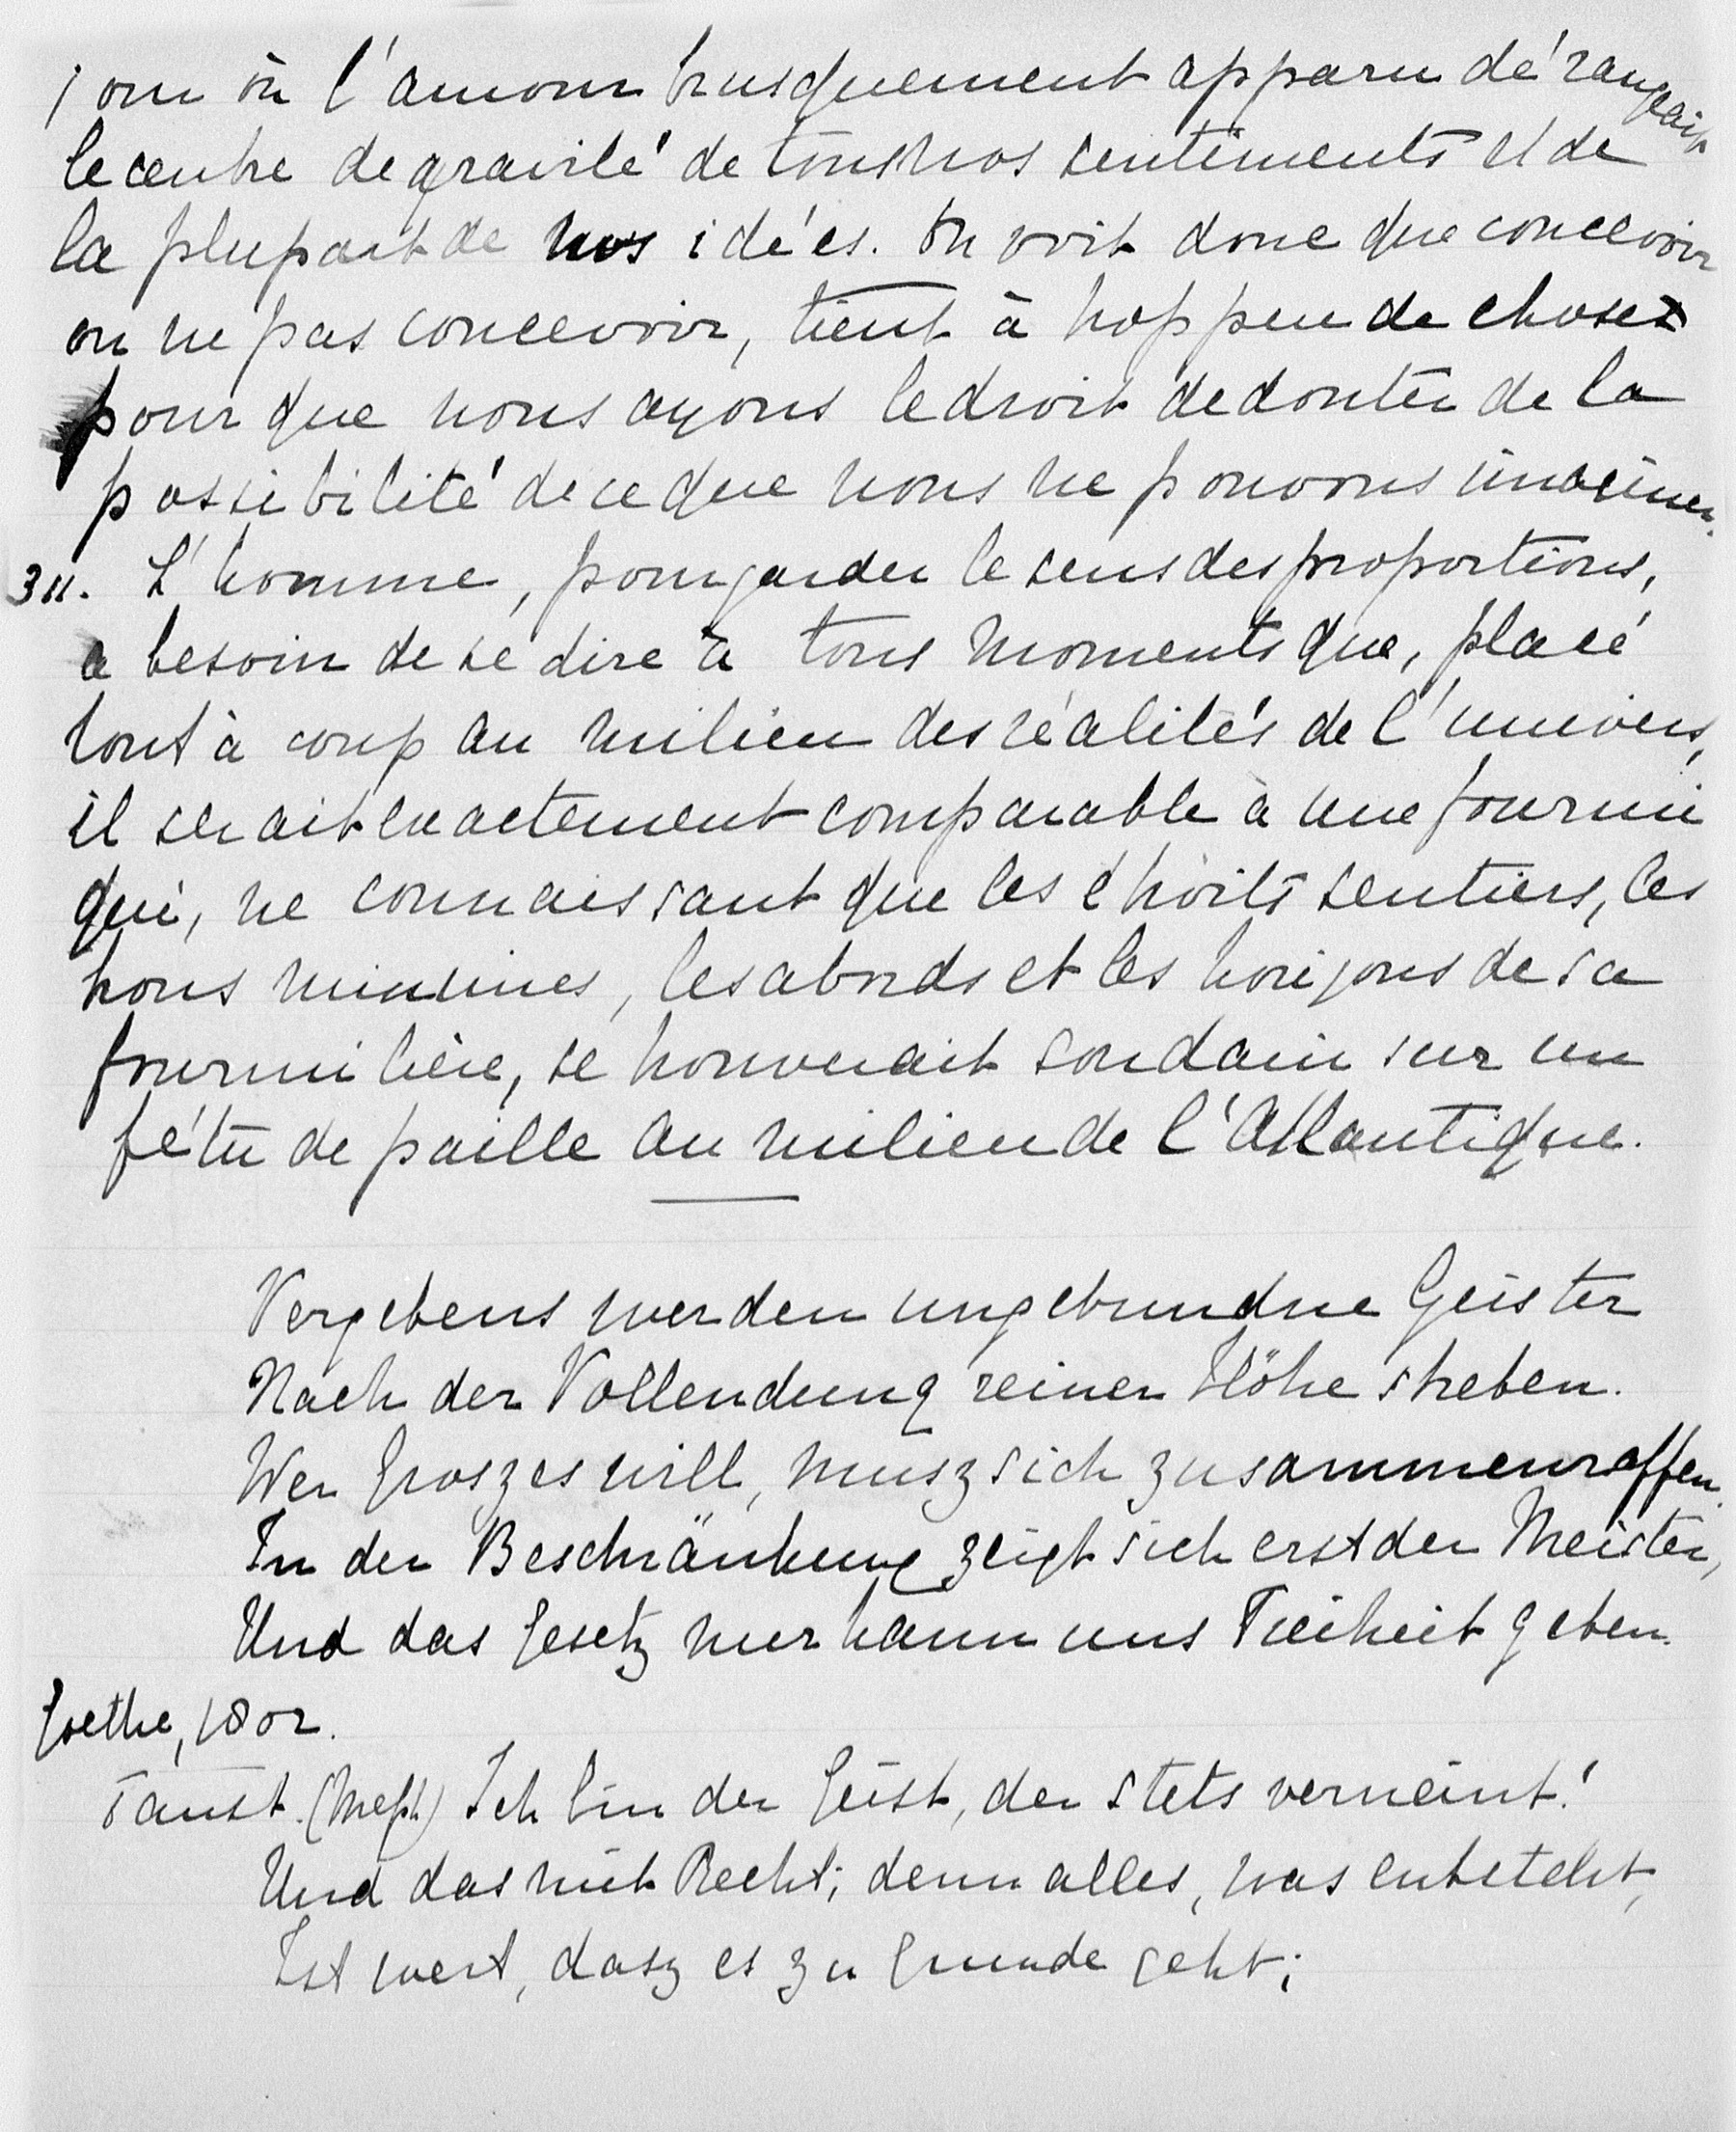 jour où l'amour brusquement apparu dérangeait
le centre de gravité de tous nos sentiments et de
la plupart de nos idées. On voit donc que concevoir
ou ne pas concevoir, tient à trop peu de chose
pour que nous ayons le droit de douter de la
possibilité de ce que nous ne pouvons imaginer.
311. L'homme, pour garder le sens des proportions,
a besoin de se dire à tous moments que, placé
tout à coup au milieu des réalités de l'univers,
il serait exactement comparable à une fourmi
qui, ne connaissant que les étroits sentiers, les
trous minimes, les abords et les horizons de sa
fourmilière, se trouverait soudain sur un
fétu de paille au milieu de l'Atlantique.
Vergebens werden ungebundne Geister
Nach der Vollendung reiner Höhe streben.
Wer Groszes will, musz sich zusammenraffen.
In der Beschränkung zeigt sich erst der Meister,
Und das Gesetz nur kann uns Freiheit geben.
Goethe, 1802.
Faust. (Meph) Ich bin der Geist, der stets verneint!
Und das mit Recht; denn alles, was entsteht,
Ist wert, dasz es zu Grunde geht;